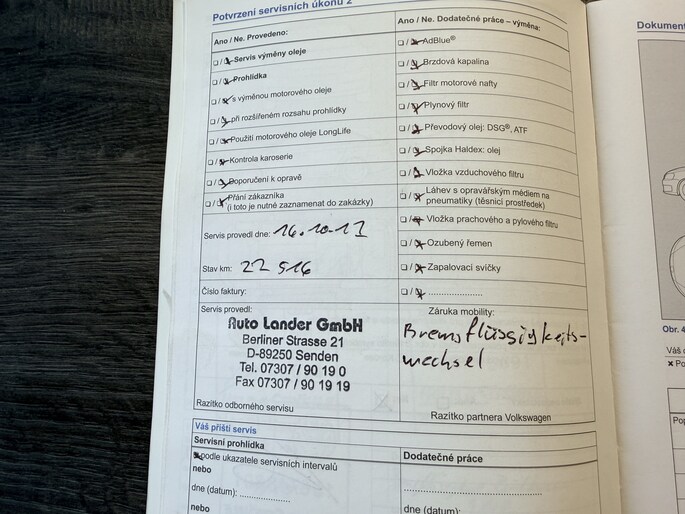 Potvrzení servisních úkonů 2
Ano / Ne. Provedeno:
Servis výměny oleje
Prohlídka
s výměnou motorového oleje
při rozšířeném rozsahu prohlídky
Použití motorového oleje LongLife
Kontrola karoserie
Doporučení k opravě
Přání zákazníka
(i toto je nutné zaznamenat do zakázky)
Servis provedl dne: 16.10.17
Stav km: 22 516
Číslo faktury:
Servis provedl:
Auto Lander GmbH
Berliner Strasse 21
D-89250 Senden
Tel. 07307 / 90 19 0
Fax 07307 / 90 19 19
Razítko odborného servisu
Ano / Ne. Dodatečné práce – výměna:
AdBlue®
Brzdová kapalina
Filtr motorové nafty
Plynový filtr
Převodový olej: DSG®, ATF
Spojka Haldex: olej
Vložka vzduchového filtru
Láhev s opravářským médiem na
pneumatiky (těsnicí prostředek)
Vložka prachového a pylového filtru
Ozubený řemen
Zapalovací svíčky
....................
Záruka mobility:
Bremsflüssigkeits-
wechsel
Razítko partnera Volkswagen
Váš příští servis
Servisní prohlídka
podle ukazatele servisních intervalů
nebo
dne (datum): ..................
nebo
Dodatečné práce
..................................................
dne (datum):
Dokument
Obr. 4
Váš